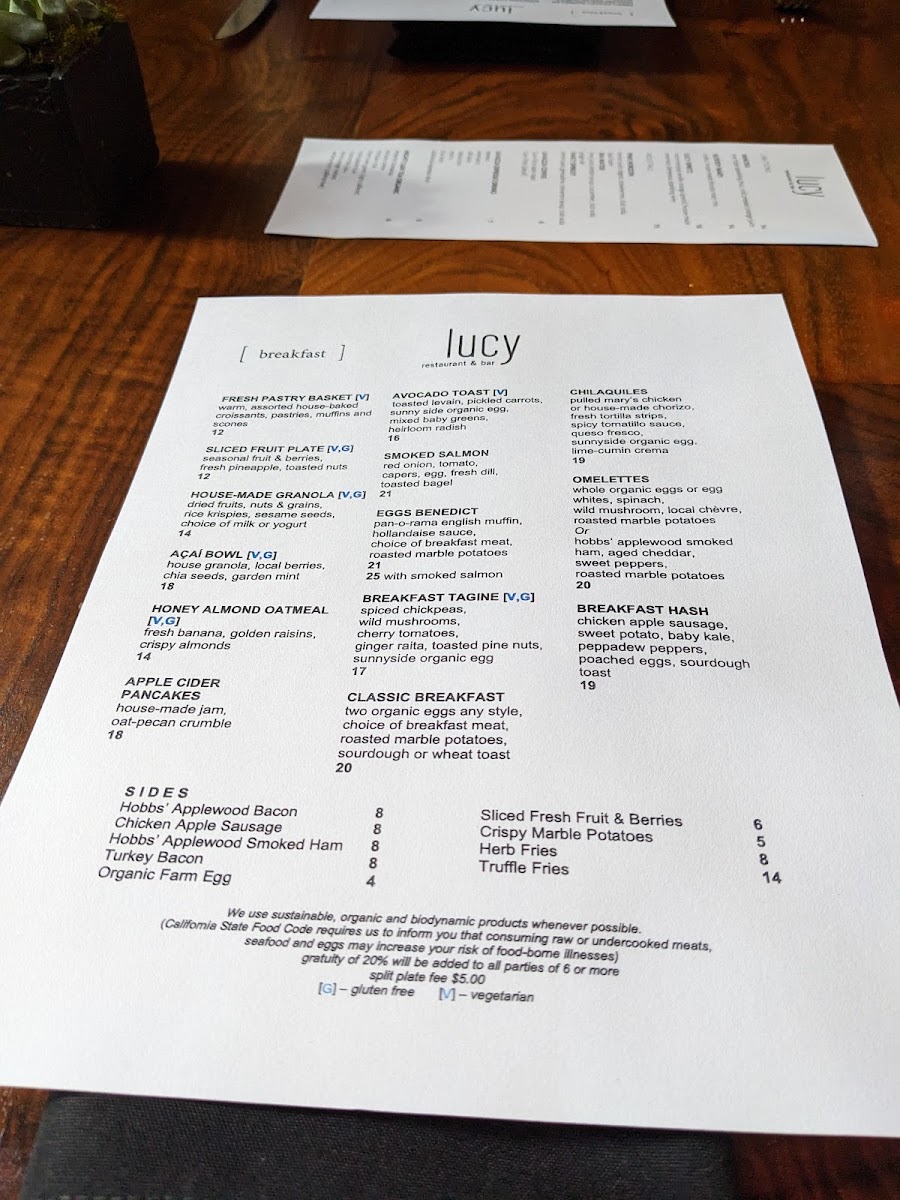 [ breakfast ]
lucy
restaurant & bar
FRESH PASTRY BASKET [V]
warm, assorted house-baked
croissants, pastries, muffins and
scones
12
SLICED FRUIT PLATE [V,G]
seasonal fruit & berries,
fresh pineapple, toasted nuts
12
HOUSE-MADE GRANOLA [V,G]
dried fruits, nuts & grains,
rice krispies, sesame seeds,
choice of milk or yogurt
14
AÇAÍ BOWL [V,G]
house granola, local berries,
chia seeds, garden mint
18
HONEY ALMOND OATMEAL
[V,G]
fresh banana, golden raisins,
crispy almonds
14
APPLE CIDER
PANCAKES
house-made jam,
oat-pecan crumble
18
AVOCADO TOAST [V]
toasted levain, pickled carrots,
sunny side organic egg,
mixed baby greens,
heirloom radish
16
SMOKED SALMON
red onion, tomato,
capers, egg, fresh dill,
toasted bagel
21
EGGS BENEDICT
pan-o-rama english muffin,
hollandaise sauce,
choice of breakfast meat,
roasted marble potatoes
21
25 with smoked salmon
BREAKFAST TAGINE [V,G]
spiced chickpeas,
wild mushrooms,
cherry tomatoes,
ginger raita, toasted pine nuts,
sunnyside organic egg
17
CLASSIC BREAKFAST
two organic eggs any style,
choice of breakfast meat,
roasted marble potatoes,
sourdough or wheat toast
20
CHILAQUILES
pulled mary's chicken
or house-made chorizo,
fresh tortilla strips,
spicy tomatillo sauce,
queso fresco,
sunnyside organic egg,
lime-cumin crema
19
OMELETTES
whole organic eggs or egg
whites, spinach,
wild mushroom, local chèvre,
roasted marble potatoes
Or
hobbs' applewood smoked
ham, aged cheddar,
sweet peppers,
roasted marble potatoes
20
BREAKFAST HASH
chicken apple sausage,
sweet potato, baby kale,
peppadew peppers,
poached eggs, sourdough
toast
19
SIDES
Hobbs' Applewood Bacon 8
Chicken Apple Sausage 8
Hobbs' Applewood Smoked Ham 8
Turkey Bacon 8
Organic Farm Egg 4
Sliced Fresh Fruit & Berries 6
Crispy Marble Potatoes 5
Herb Fries 8
Truffle Fries 14
We use sustainable, organic and biodynamic products whenever possible.
(California State Food Code requires us to inform you that consuming raw or undercooked meats,
seafood and eggs may increase your risk of food-borne illnesses)
gratuity of 20% will be added to all parties of 6 or more
split plate fee $5.00
[G] – gluten free [V] – vegetarian
lucy
lucy